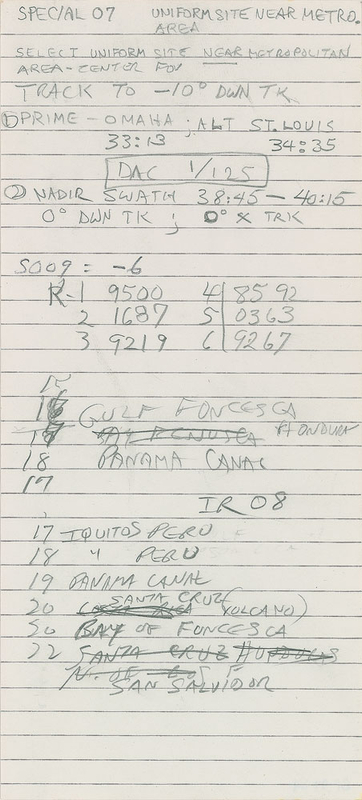 SPECIAL 07 UNIFORM SITE NEAR METRO.
AREA
SELECT UNIFORM SITE NEAR METROPOLITAN
AREA - CENTER FOV
TRACK TO -10° DWN TK
① PRIME - OMAHA ; ALT ST. LOUIS
33:13 34:35
DAC 1/125
② NADIR SWATH 38:45 - 40:15
0° DWN TK ; 0° X TRK
S009 = -6
R-1 9500 4 8592
2 1687 5 0363
3 9219 6 9267
15
16 GULF FONCESCA
HONDURA
18 PANAMA CANAL
17
IR 08
17 IQUITOS PERU
18 " PERU
19 PANAMA CANAL
20 SANTA CRUZ (VOLCANO)
20 BAY OF FONCESCA
22 SANTA CRUZ
SAN SALVIDOR